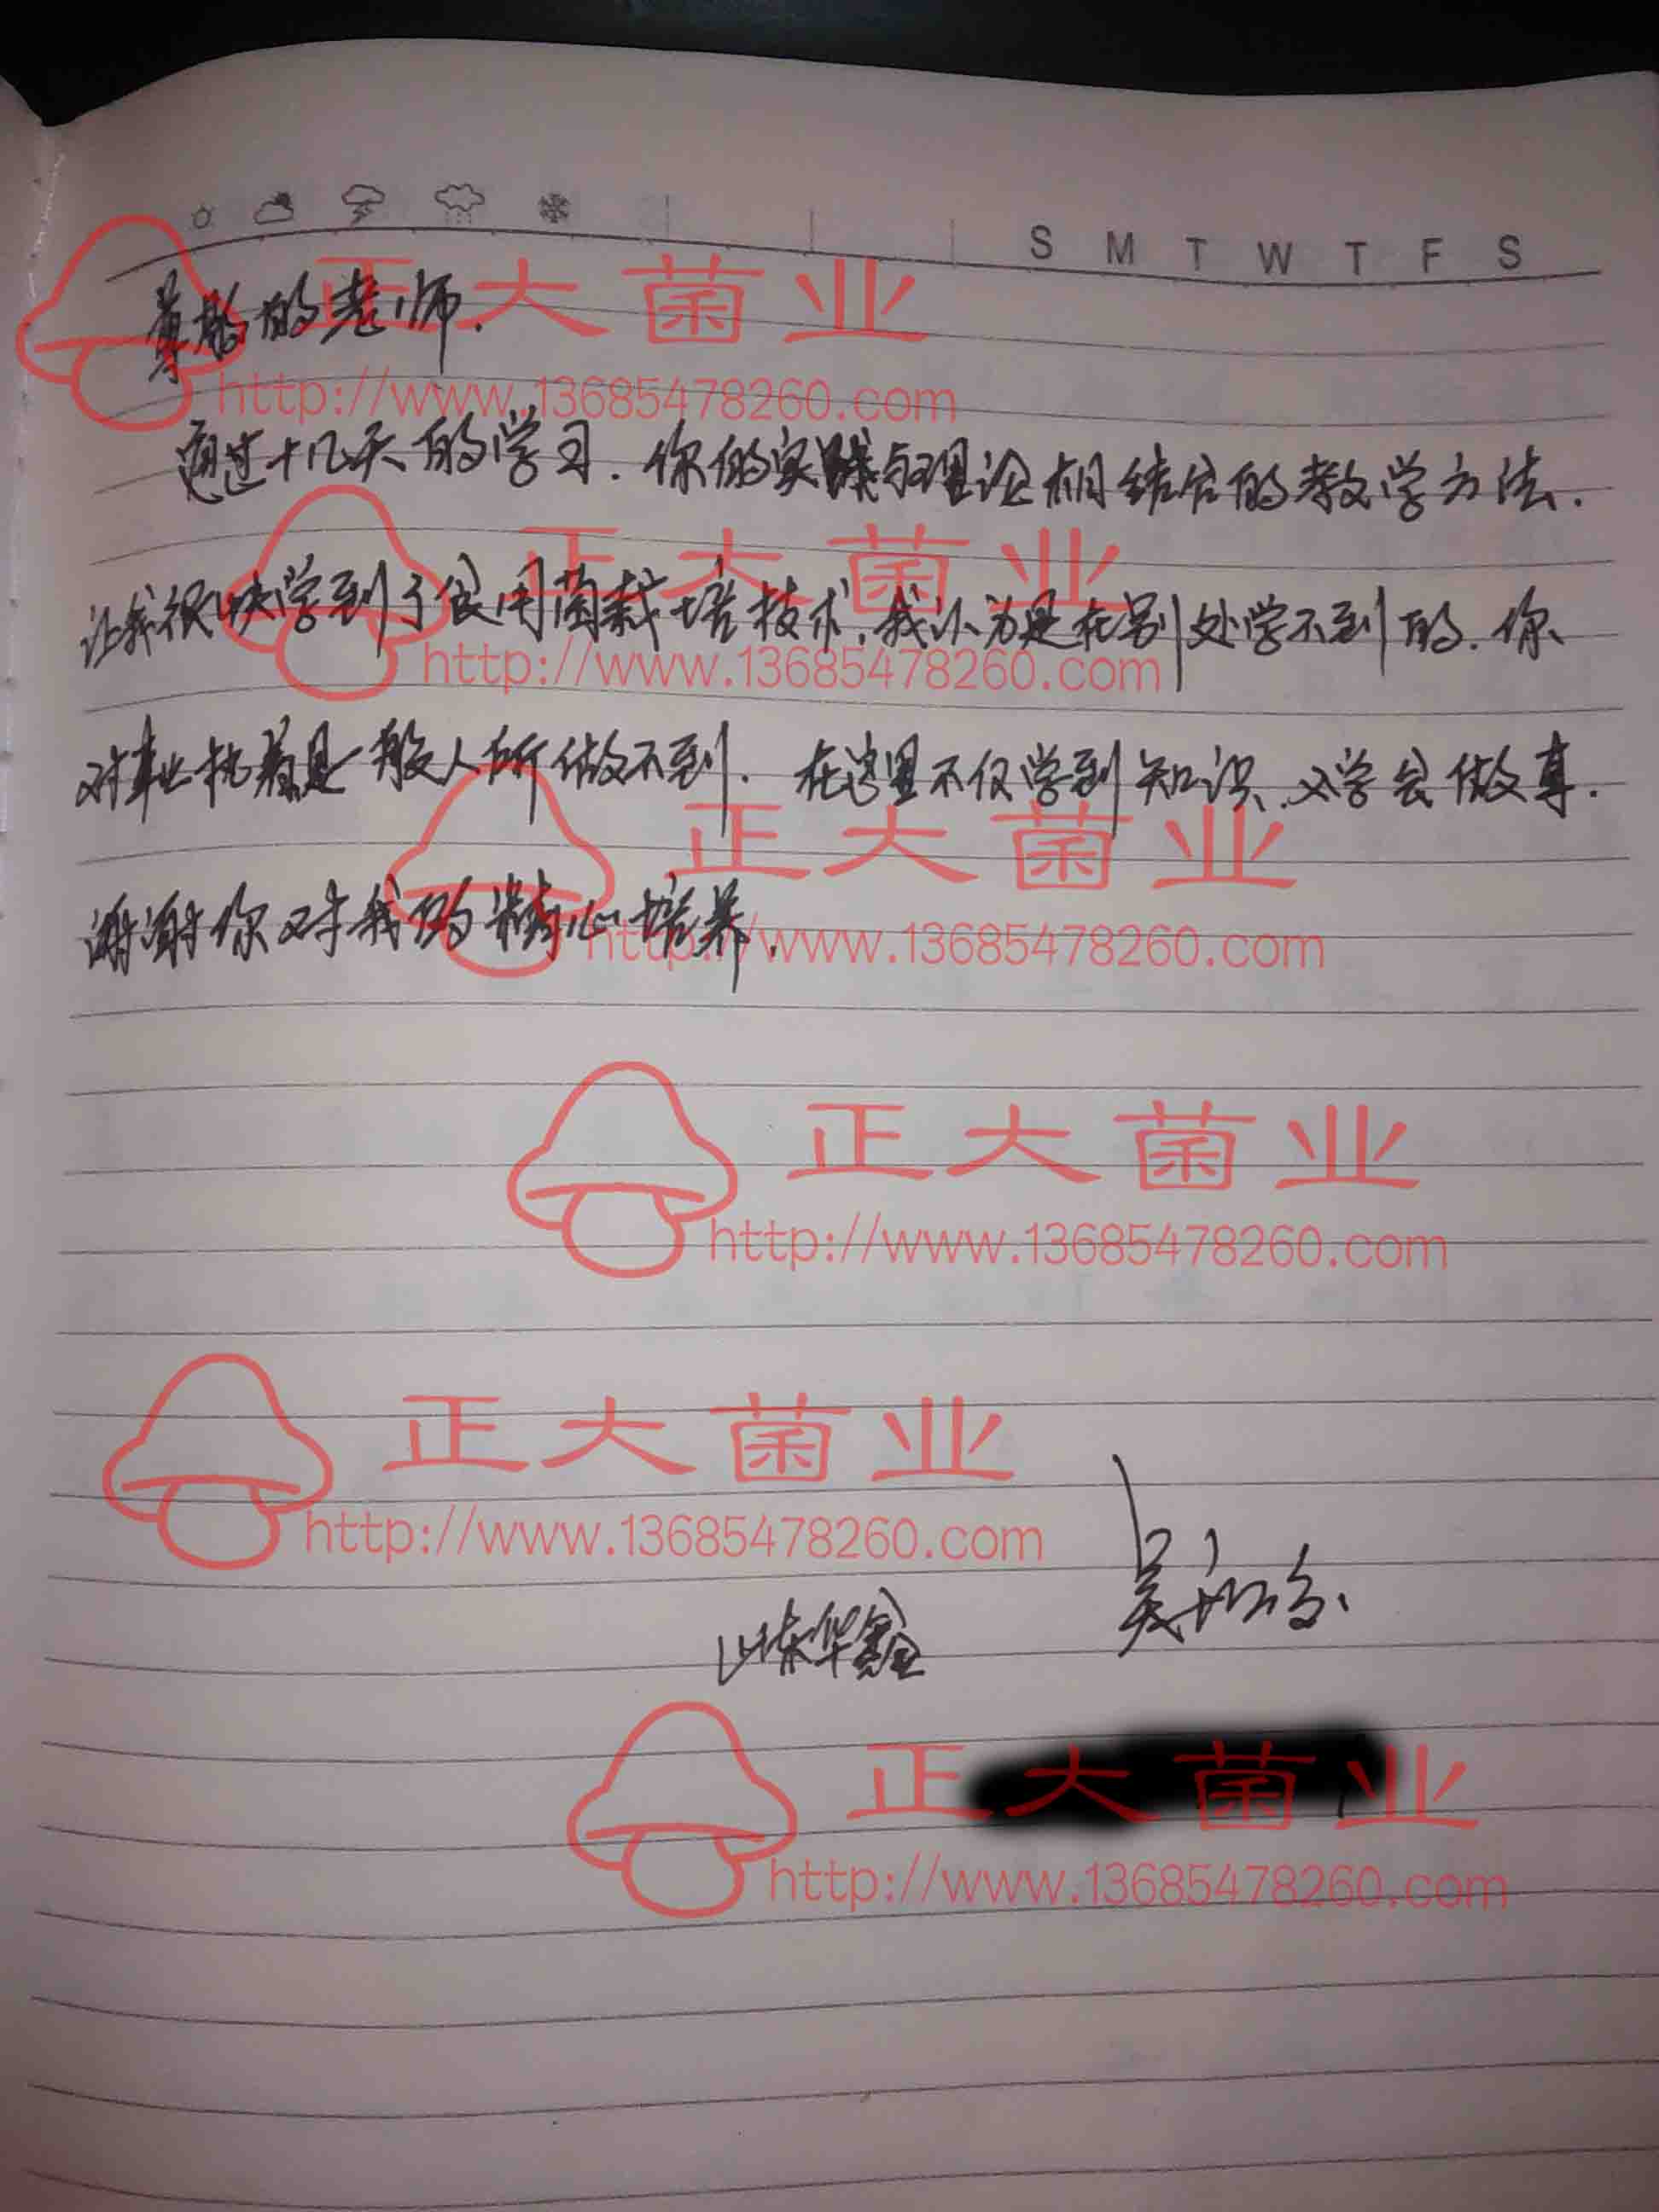 S M T W T F S
尊敬的老师.
正大菌业
http://www.13685478260.com
通过十几天的学习.你的实践与理论相结合的教学方法.
正大菌业
让我很快学到了食用菌栽培技术.我认为是在别处学不到的.你
http://www.13685478260.com
对事业执着是一般人所做不到.在这里不仅学到知识.又学会做事.
正大菌业
谢谢你对我的精心培养.
http://www.13685478260.com
正大菌业
http://www.13685478260.com
正大菌业
http://www.13685478260.com
山东华鑫 吴
正大菌业
http://www.13685478260.com